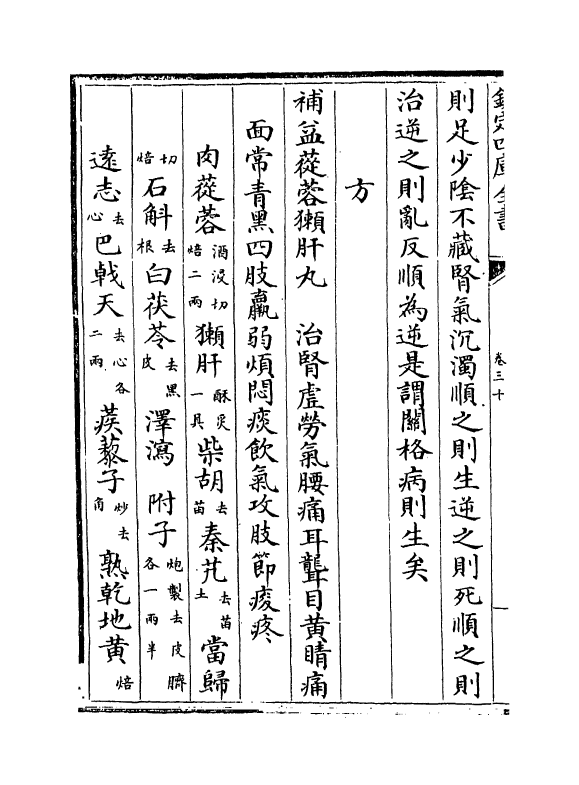 欽定四庫全書
卷三十
則足少陰不藏腎氣沉濁順之則生逆之則死順之則
治逆之則亂反順為逆是謂關格病則生矣
方
補益蓯蓉獺肝丸 治腎虛勞氣腰痛耳聾目黃睛痛
面常青黑四肢羸弱煩悶痰飲氣攻肢節痠疼
肉蓯蓉酒浸切焙二兩 獺肝酥炙一具 柴胡去苗 秦艽去苗土 當歸
切焙 石斛去根 白茯苓去黑皮 澤瀉 附子炮製去皮臍各一兩半
遠志去心 巴戟天去心各二兩 蒺藜子炒去角 熟乾地黃焙